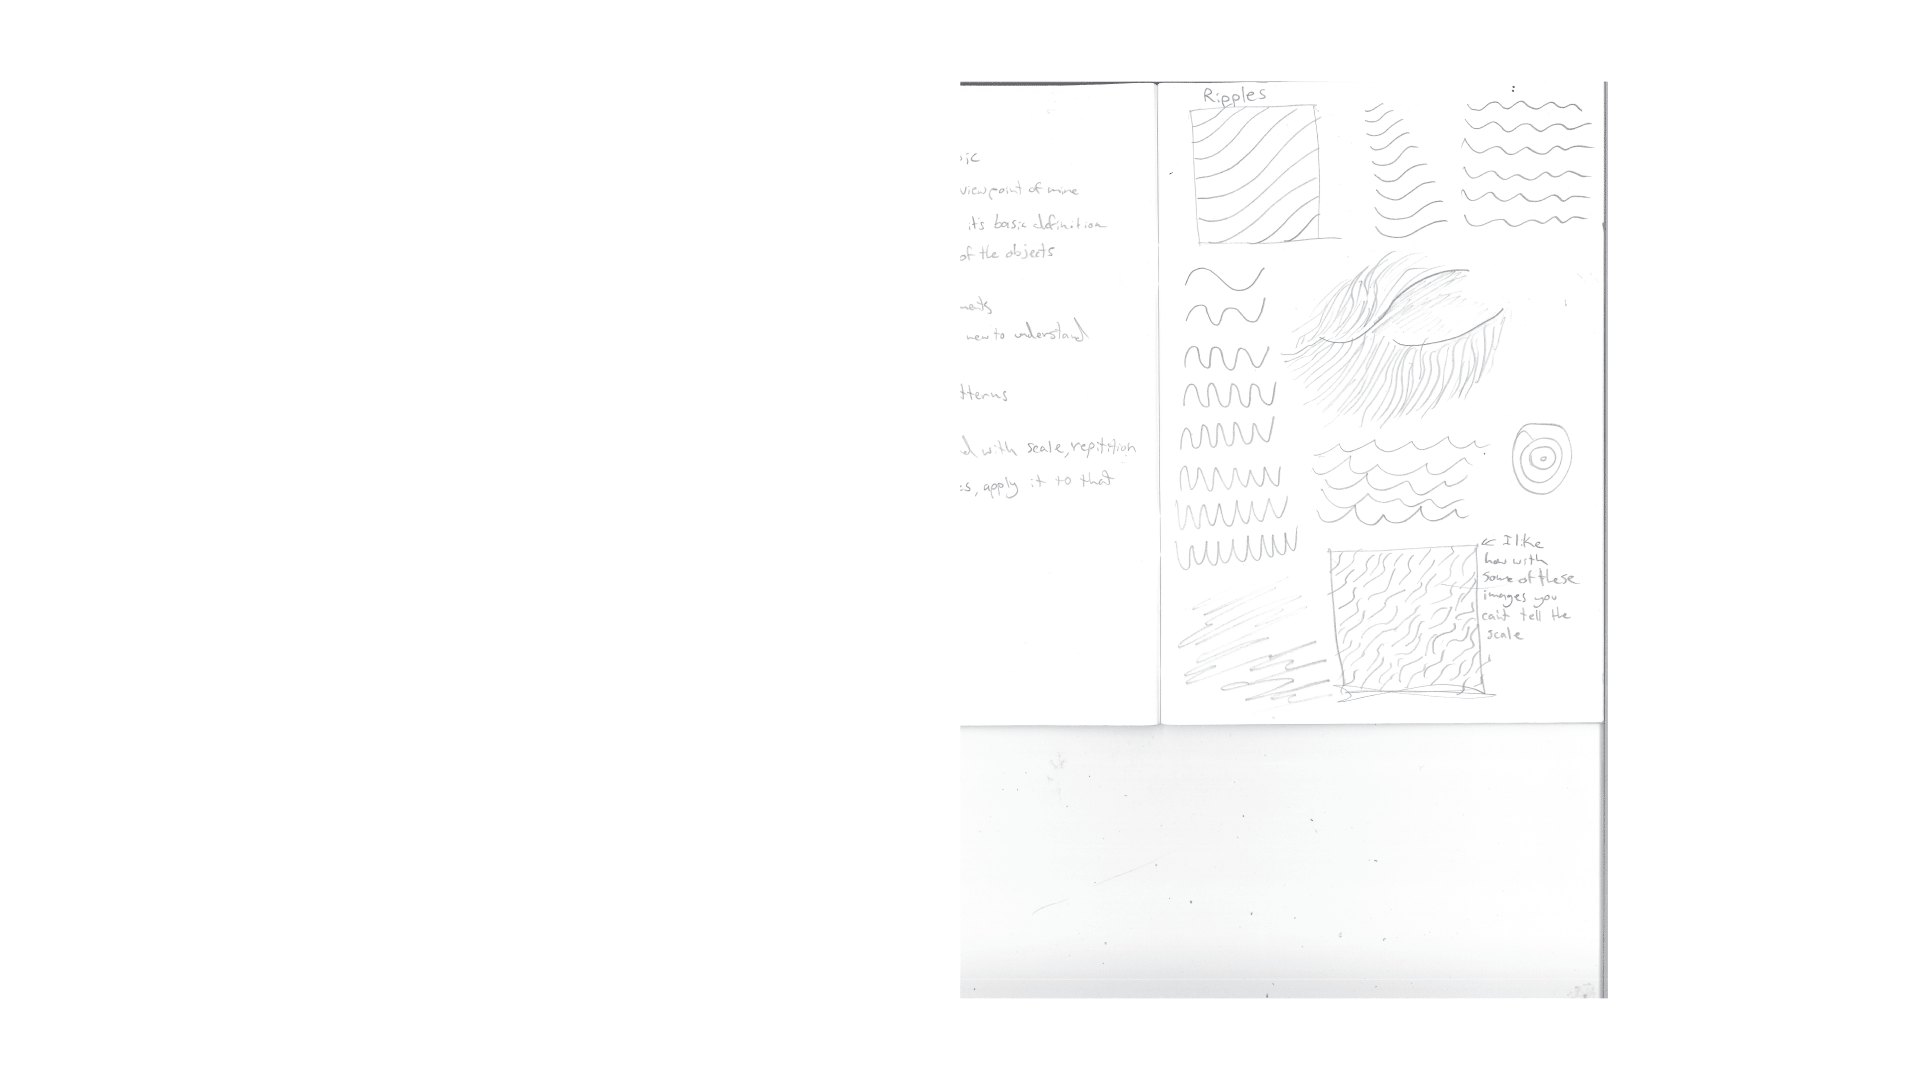 viewpoint of mine
it's basic definition
of the objects
new to understand
with scale, repitition
apply it to that
Ripples
I like
how with
some of these
images you
can't tell the
scale